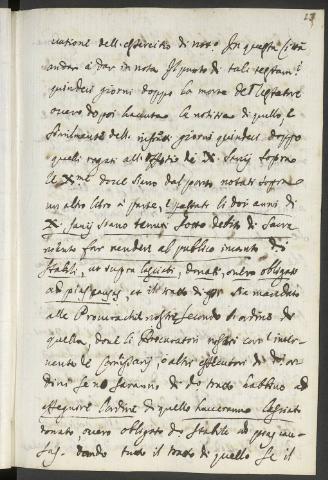 23
cutione dell'essercitio di noto. In questa Città
andar à dar in nota il punto di tali testam.ti
quindeci giorni doppo la morte del Testatore
overo dopoi havuta la notitia di quello, e
similmente dell' giorni quindeci doppo
quelli rogati all'offitio de X. Savij sopra
le X.me dove siano dal porto notati sopra
un altro libro à parte, e passati li doi anni di
X. Savij siano tenuti sotto debito di Sacra-
mento far vender al publico incanto d.i
stabili, ut supra lasciati, donati, overo obligati
ad pias causas, et il tratto di essi sia mandato
alle Procuratie nostre secondo l'ordine de
quella, dove li Procuratori nostri con l'inter-
vento de Comissarij, o altri essecutori di d.i or-
dini se ne saranno di d.o tratto habbino ad
essequire l'ordine di quello haveranno lassato
donato, overo obligato d.o stabile ad pias cau-
sas, dando tutto il tratto di quello se il